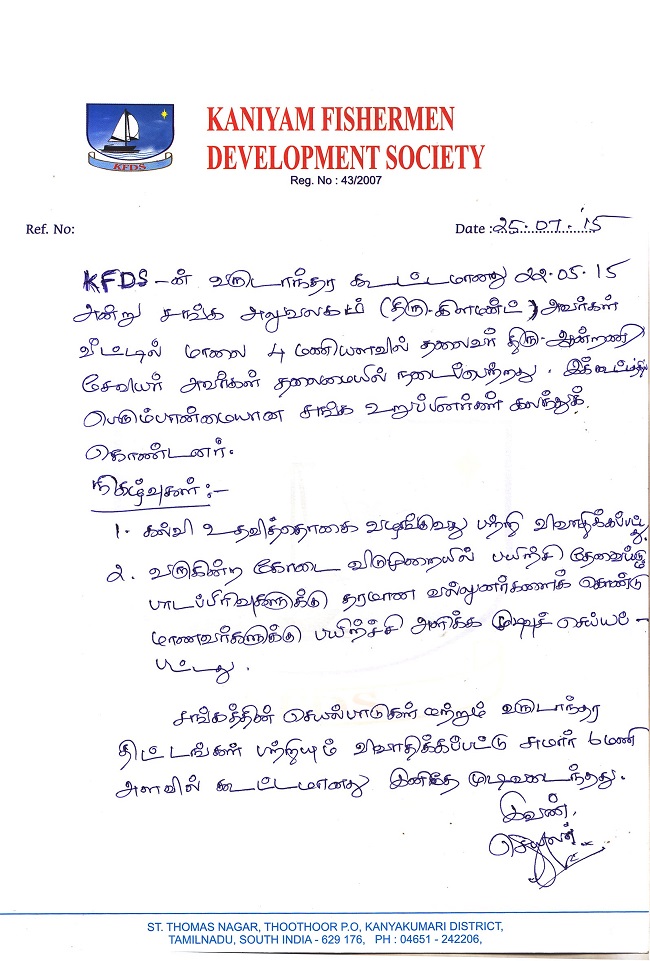 KFDS
KANIYAM FISHERMEN
DEVELOPMENT SOCIETY
Reg. No : 43/2007
Ref. No:
Date : 25.07.'15
KFDS -ன் வருடாந்தர கூட்டமானது 22.05.15
அன்று சங்க அலுவலகம் (திரு.கிளமண்ட்) அவர்கள்
வீட்டில் மாலை 4 மணியளவில் தலைவர் திரு. ஆன்றணி
சேவியர் அவர்கள் தலைமையில் நடைபெற்றது.
பெரும்பான்மையான சங்க உறுப்பினர்கள் கலந்துக்
கொண்டனர்.
நிகழ்வுகள் :-
1. கல்வி உதவித்தொகை வழங்குவது பற்றி விவாதிக்கப்பட்டது.
2. வருகின்ற கோடை விடுமுறையில் பயிற்சி
பாடப்பிரிவுகளுக்கு தரமான வல்லுனர்களைக் கொண்டு
மாணவர்களுக்கு பயிற்ச்சி அளிக்க முடிவுச் செய்யப் -
பட்டது.
சங்கத்தின் செயல்பாடுகள் மற்றும் வருடாந்தர
திட்டங்கள் பற்றியும் விவாதிக்கப்பட்டு சுமார் 6 மணி
அளவில் கூட்டமானது இனிதே முடிவடைந்தது.
இவண்,
செயலர்
ST. THOMAS NAGAR, THOOTHOOR P.O, KANYAKUMARI DISTRICT,
TAMILNADU, SOUTH INDIA - 629 176, PH : 04651 - 242206,